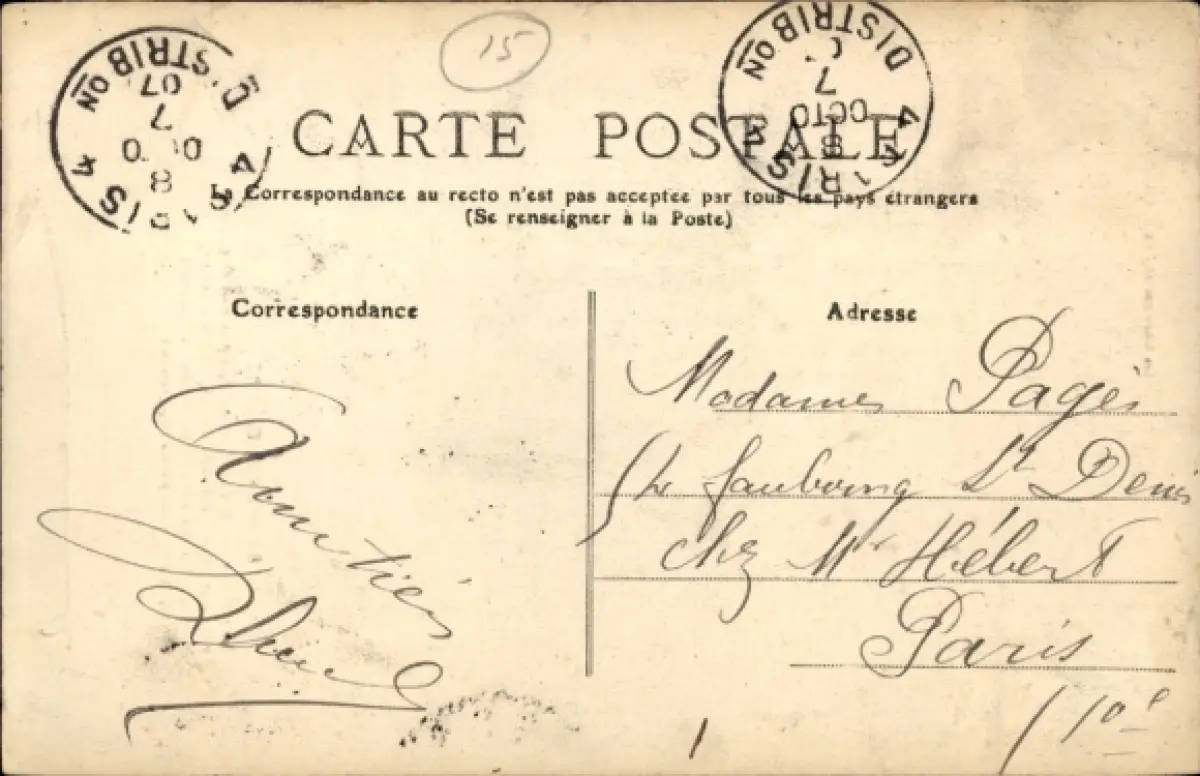 15
CARTE POSTALE
La Correspondance au recto n'est pas acceptée par tous les pays étrangers
(Se renseigner à la Poste)
PARIS 4 DISTRIBON
8
OCTO
7
07
PARIS 4 DISTRIBON
8
OCTO
7
Correspondance
Amitiés
Adresse
Madame Pagès
faubourg St Denis
chez Mr Hébert
Paris
10e